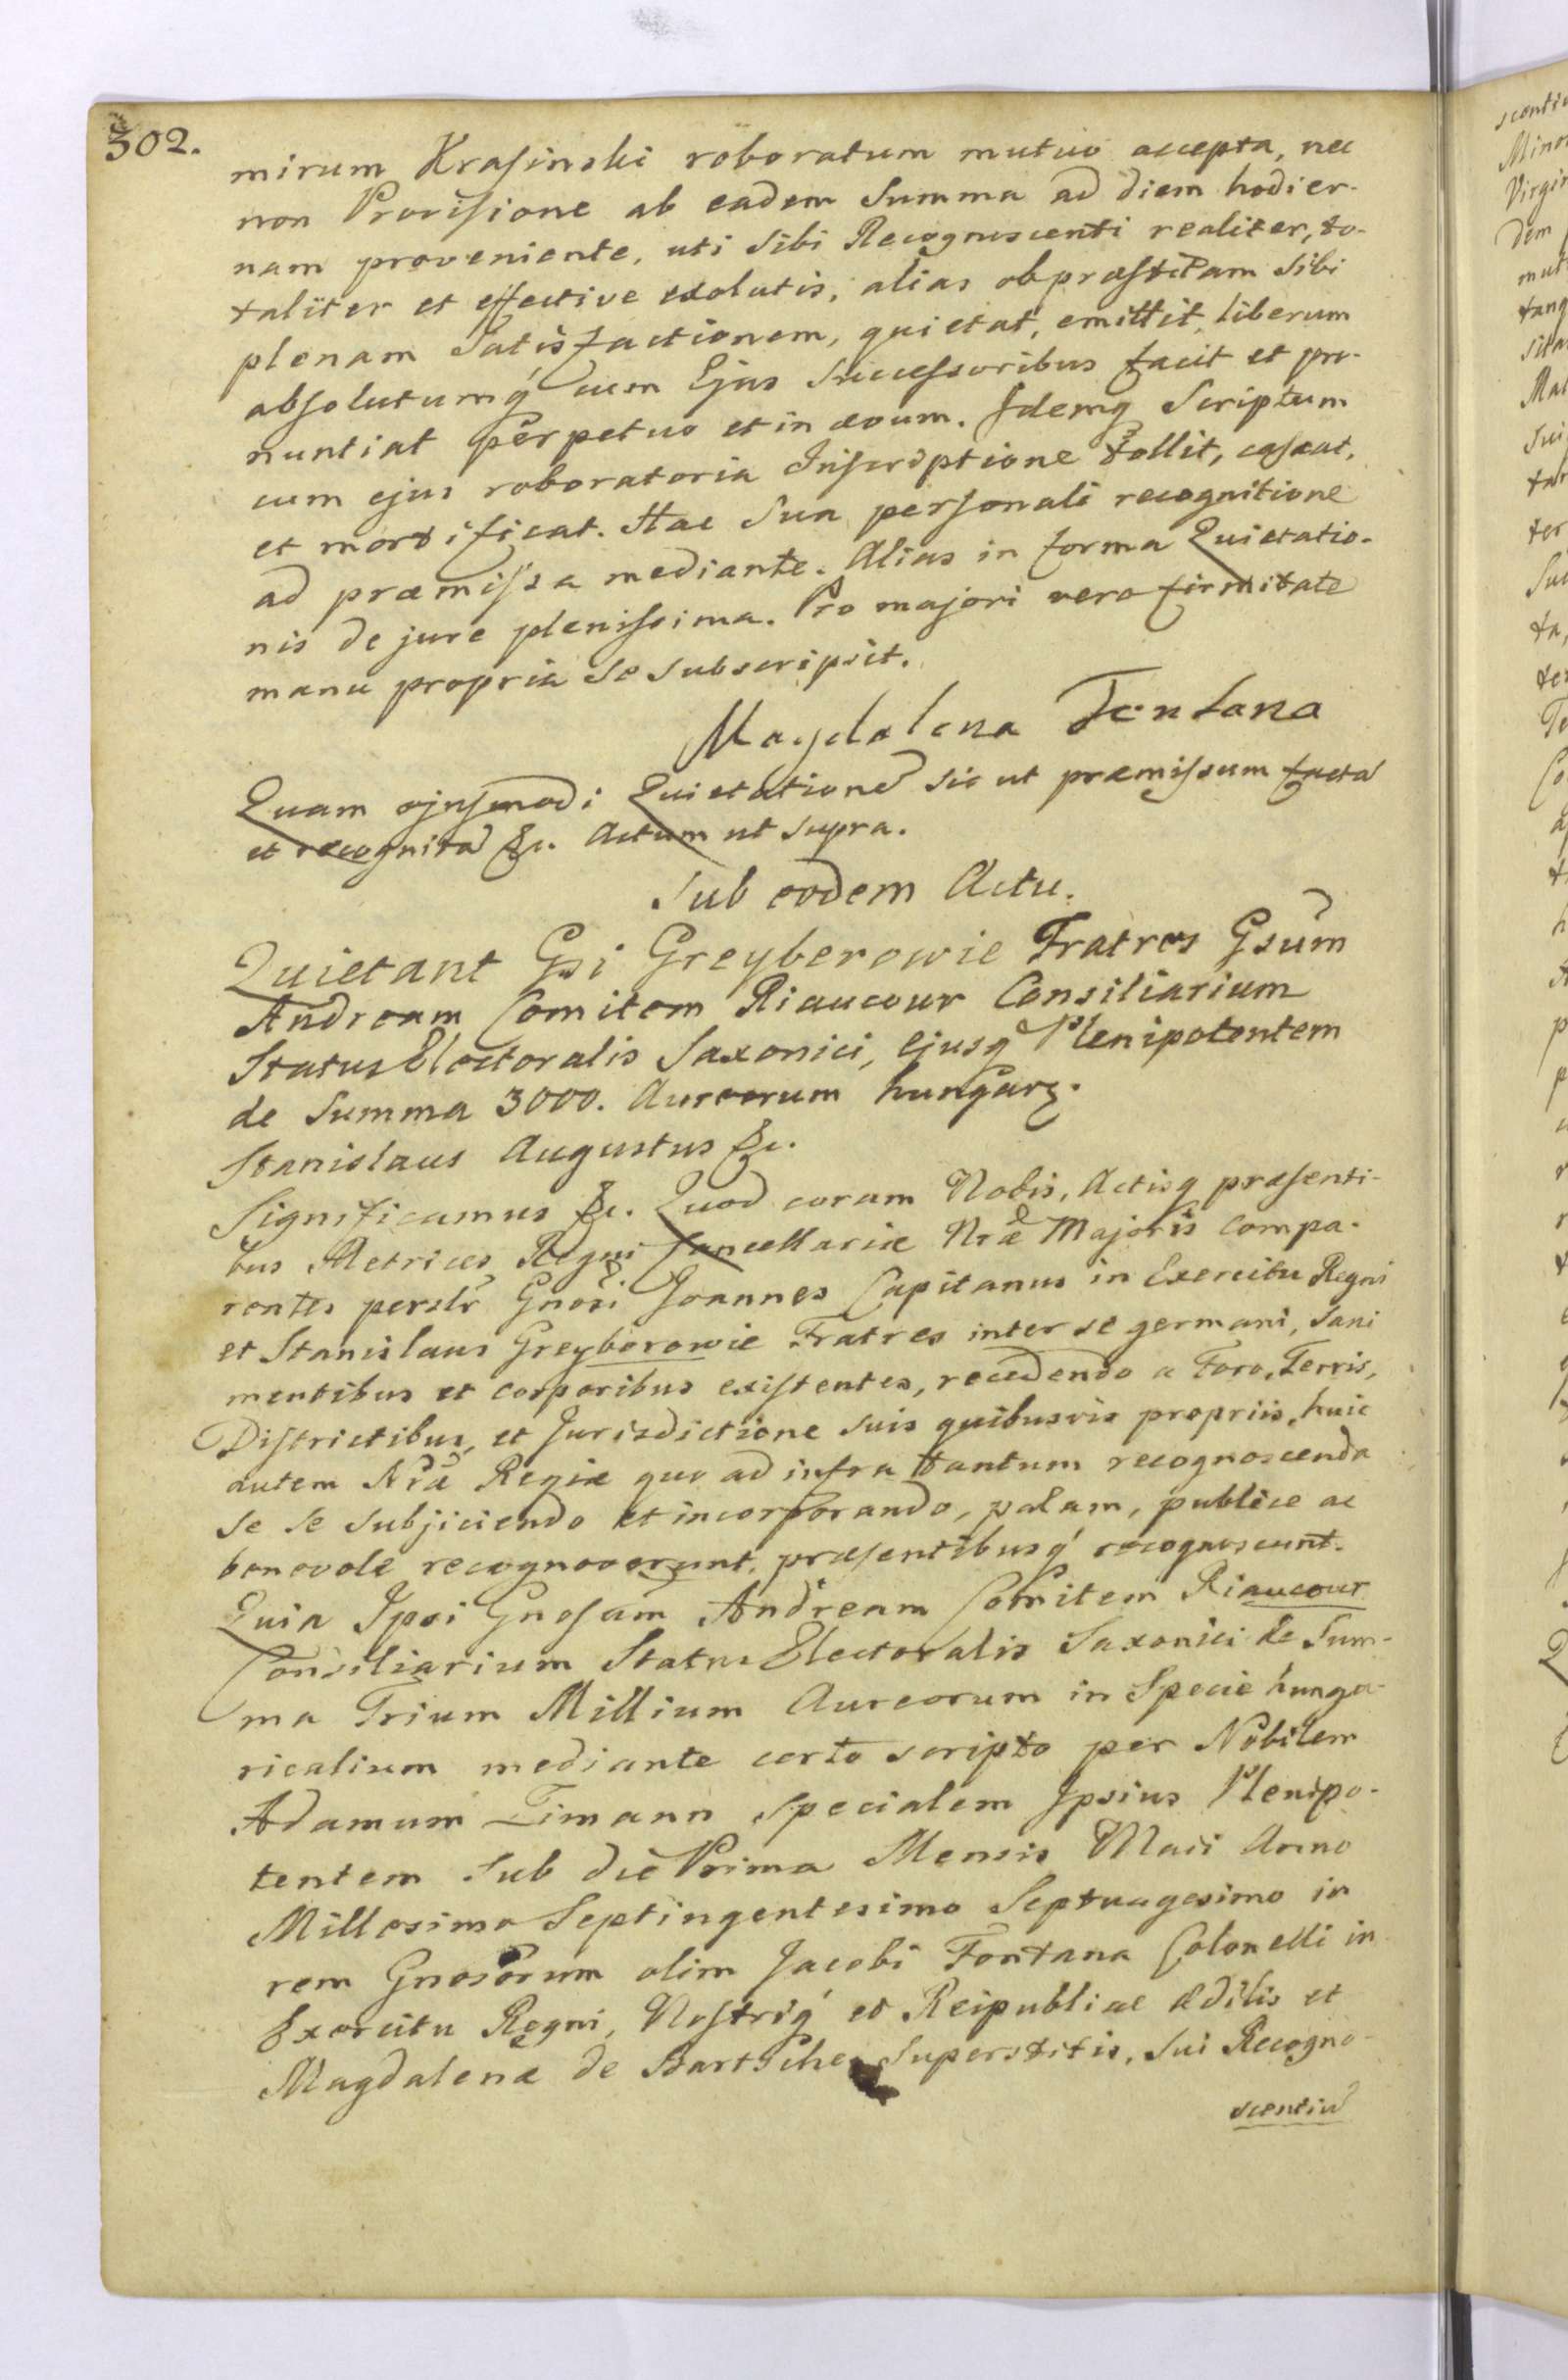 302.
mirum Krasinski roboratum mutuo accepta, nec
non Provisione ab eadem Summa ad diem hodier-
nam proveniente, uti Sibi Recognoscenti realiter, to-
taliter et effective exolutis, alias ob præstitam Sibi
plenam Satisfactionem, quietat, emittit, liberum
absolutumq́ cum Ejus Successoribus facit et pro-
nuntiat perpetuo et in ævum. Idemq́ Scriptum
cum ejus roboratoria Inscriptione tollit, cassat,
et mortificat. Hac Sua personali recognitione
ad præmissa mediante. Alias in forma Quietatio-
nis de jure plenissima. Pro majori vero firmitate
manu propria Se Subscripsit.
Magdalena Fontana
Quam ejusmodi Quietatione sic ut præmissum facta
et recognita &c. Actum ut Supra.
Sub eodem Actu.
Quietant Gsi Greyberowie Fratres Gsum
Andream Comitem Riaucour Consiliarium
Status Electoralis Saxonici, Ejusq́ Plenipotentem
de Summa 3000. Aureorum hungarz.
Stanislaus Augustus &c.
Significamus &c. Quod coram Nobis, Actisq́ præsenti-
bus Metrices Regni Cancellariæ Nræ Majoris compa-
rentes perslr Gnosi Joannes Capitanus in Exercitu Regni
et Stanislaus Greyberowie Fratres inter se germani, Sani
mentibus et corporibus existentes, recedendo a Foro, Terris,
Districtibus, et Jurisdictione Suis quibusvis propriis, huic
autem Nræ Regiæ quo ad infra tantum recognoscenda
Se Se Subjiciendo et incorporando, palam, publice ac
benevole recognoverunt, præsentibusq́ recognoscunt.
Quia Ipsi Gnosum Andream Comitem Riaucour
Consiliarium Status Electoralis Saxonici de Sum-
ma Trium Millium Aureorum in Specie hunga-
ricalium mediante certo scripto per Nobilem
Adamum Timann Specialem Ipsius Plenipo-
tentem Sub die Prima Mensis Maii Anno
Millesimo Septingentesimo Septuagesimo in
rem Gnosorum olim Jacobi Fontana Colonelli in
Exercitu Regni, Nostriq́ et Reipublicæ Ædilis et
Magdalenæ de Bartsche Superstitis, Sui Recogno-
scentiu